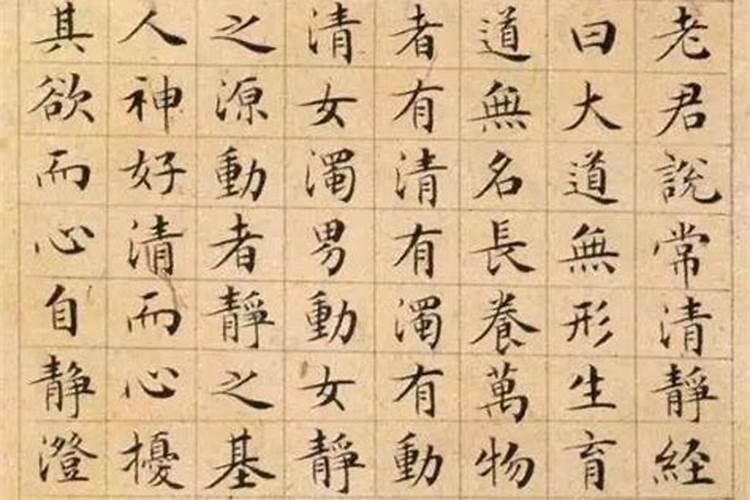 老君說常清靜經
曰大道無形生育
道無名長養萬物
者有清有濁有動
清女濁男動女靜
之源動者靜之基
人神好清而心擾
其欲而心自靜澄